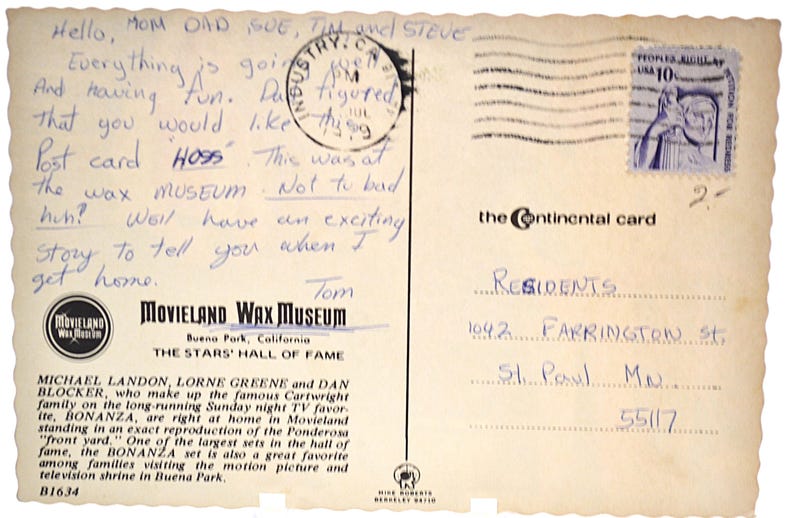 Hello, MOM DAD SUE, TIM and STEVE
Everything is going well
And having fun. Dad figured
that you would like this
Post card "HOSS". This was at
the wax MUSEUM. Not to bad
huh? Well have an exciting
story to tell you when I
get home.
Tom
MOVIELAND WAX MUSEUM
MOVIELAND WAX MUSEUM
Buena Park, California
THE STARS' HALL OF FAME
MICHAEL LANDON, LORNE GREENE and DAN
BLOCKER, who make up the famous Cartwright
family on the long-running Sunday night TV favor-
ite, BONANZA, are right at home in Movieland
standing in an exact reproduction of the Ponderosa
"front yard." One of the largest sets in the hall of
fame, the BONANZA set is also a great favorite
among families visiting the motion picture and
television shrine in Buena Park.
B1634
INDUSTRY, CA
PM
JUL
PEOPLE'S RIGHT TO
PETITION FOR REDRESS
USA 10c
2.-
the Continental card
RESIDENTS
1042 FARRINGTON St.
St. Paul MN.
55117
MIKE ROBERTS
BERKELEY 94710